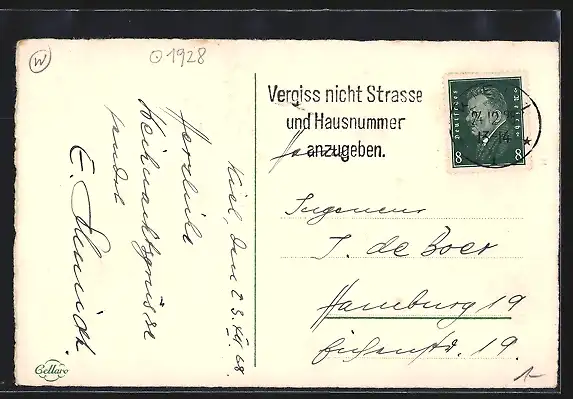 W
1928
Kiel, den 23.XII.28
Herzliche
Weihnachtsgrüsse
sendet
E. Schmidt.
Cellaro
Vergiss nicht Strasse
und Hausnummer
anzugeben.
KIEL
24.12.28
13-14
Deutsches Reich
8 8
Herrn
Ingenieur
J. de Boer
Hamburg 19
Eichenstr. 19.